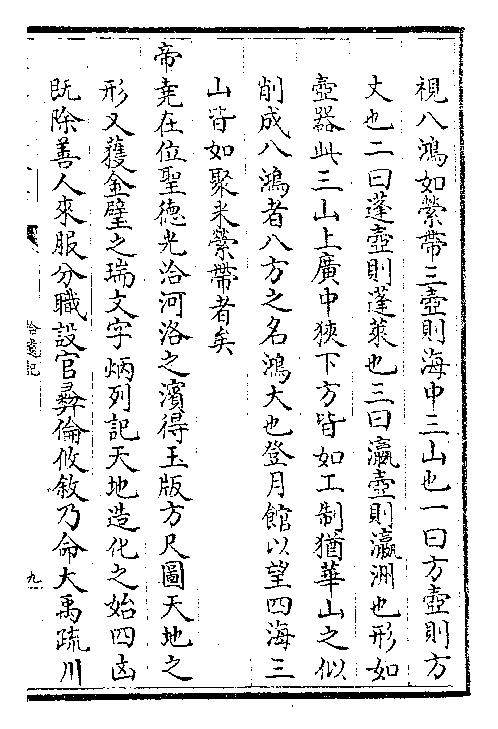 視八鴻如縈帶三壺則海中三山也一曰方壺則方
丈也二曰蓬壺則蓬萊也三曰瀛壺則瀛洲也形如
壺器此三山上廣中狹下方皆如工制猶華山之似
削成八鴻者八方之名鴻大也登月館以望四海三
山皆如聚米縈帶者矣
帝堯在位聖德光洽河洛之濱得玉版方尺圖天地之
形又獲金璧之瑞文字炳列記天地造化之始四凶
既除善人來服分職設官彝倫攸敘乃命大禹疏川
拾遺記
九